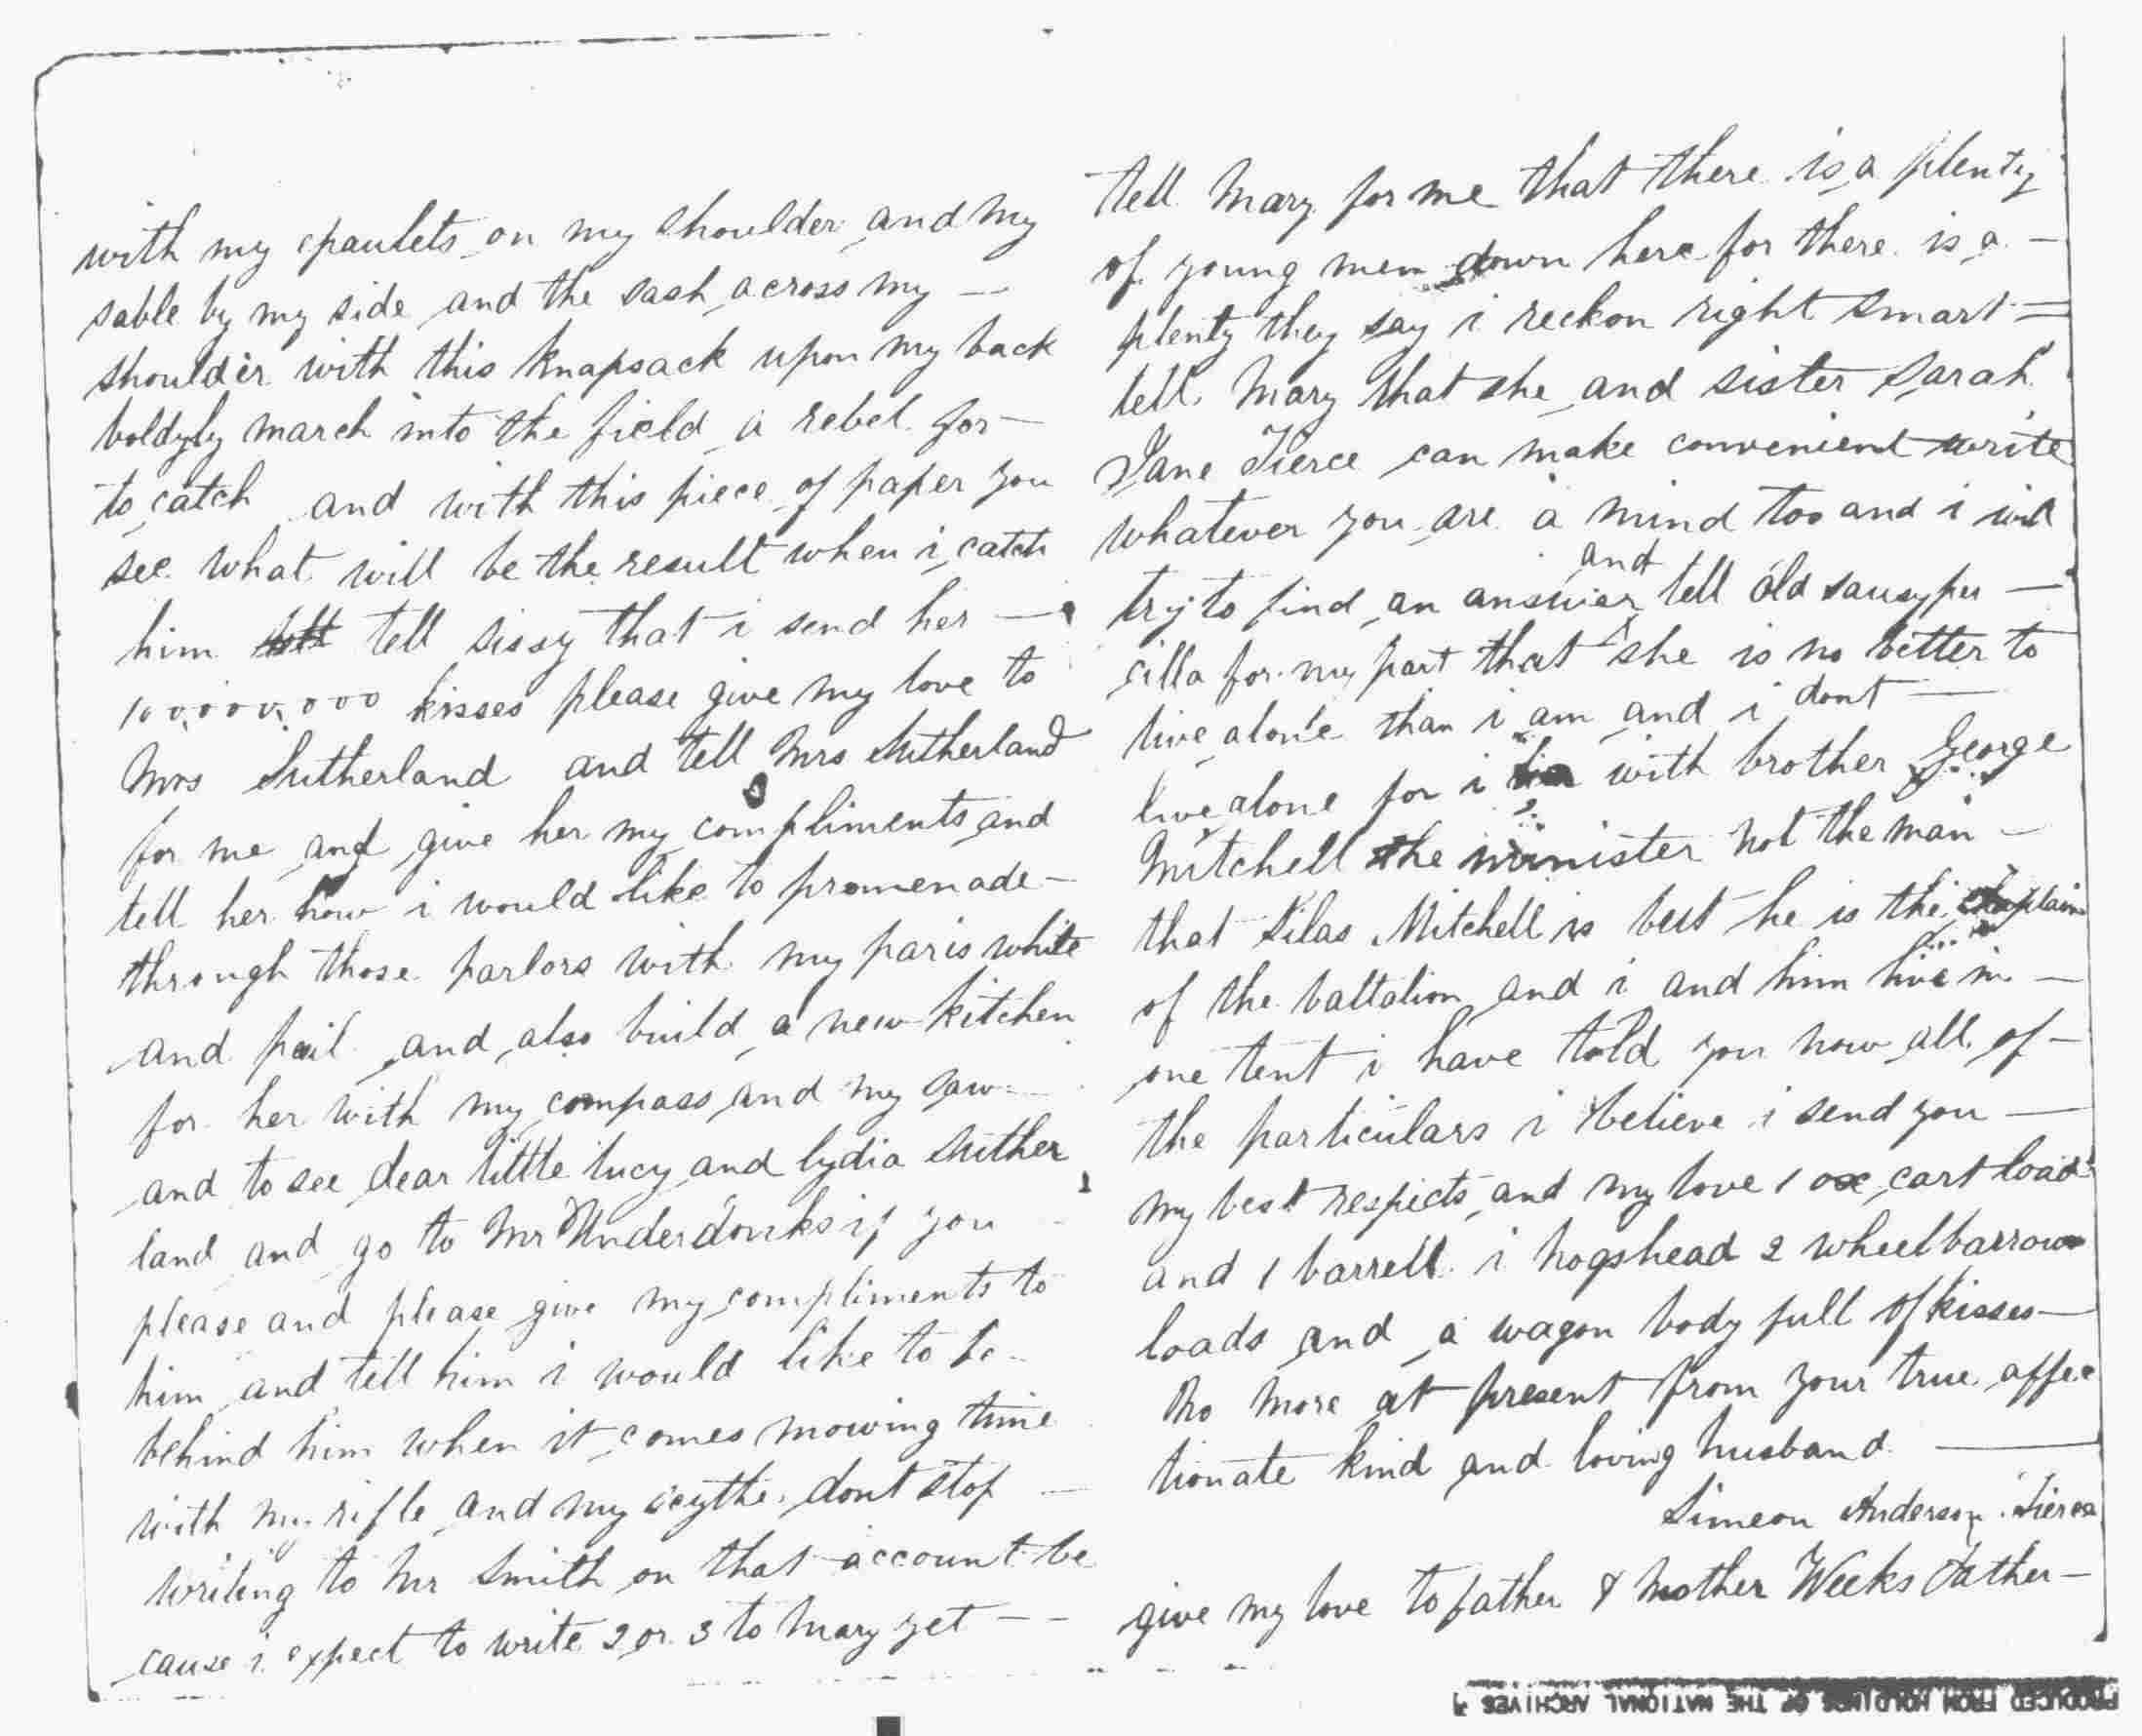 with my epaulets on my shoulder and my
sable by my side and the sash across my —
shoulder with this knapsack upon my back
boldyly march into the field a rebel for —
to catch and with this piece of paper you
see what will be the result when i catch
him tell sissy that i send her —
100,000,000 kisses please give my love to
Mrs Sutherland and tell Mrs Sutherland
for me and give her my compliments and
tell her how i would like to promenade —
through those parlors with my paris white
and pail and also build a new kitchen
for her with my compass and my saw —
and to see dear little lucy and lydia Suther
land and go to Mr Underdonks if you
please and please give my compliments to
him and tell him i would like to be
behind him when it comes mowing time
with my rifle and my scythe dont stop —
writing to Mr Smith on that account be
cause i expect to write 2 or 3 to Mary yet — —
tell Mary for me that there is a plenty
of young men down here for there is a —
plenty they say i reckon right smart =
tell Mary that she and sister Sarah
Jane Tierce can make convenient write
whatever you are a mind too and i will
try to find an answer and tell old sausy per —
cilla for my part that she is no better to
live alone than i am and i dont —
live alone for i with brother George
Mitchell the minister not the man —
that Silas Mitchell is but he is the chaplain
of the battalion and i and him live in —
one tent i have told you now all of —
the particulars i believe i send you —
my best respects and my love 1 ox cart load
and 1 barrell i hogshead 2 wheelbarrow
loads and a wagon body full of kisses —
No more at present from your true affec
tionate kind and loving husband —
Simeon Anderson Tierce
give my love to father & mother Weeks Father —
PRODUCED FROM HOLDINGS OF THE NATIONAL ARCHIVES